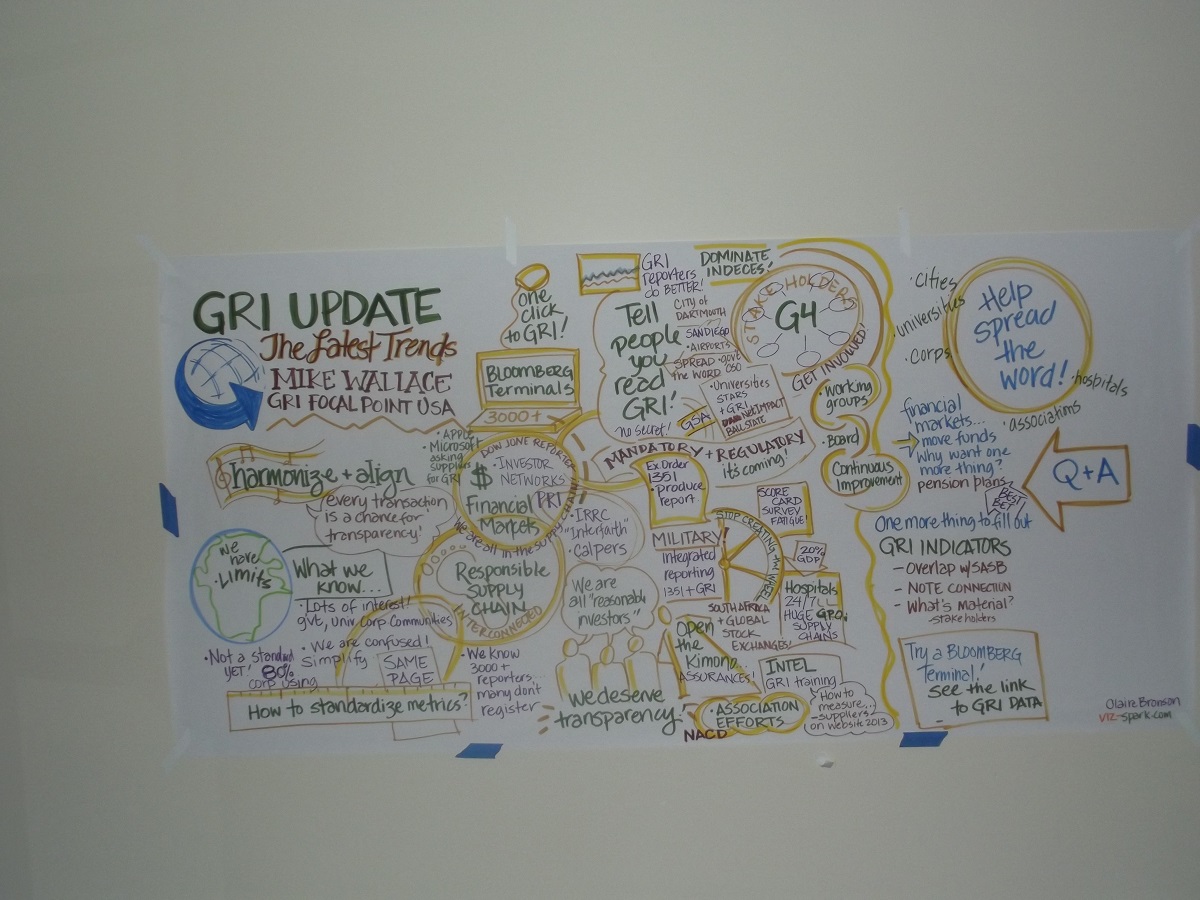 GRI UPDATE
The Latest Trends
MIKE WALLACE
GRI FOCAL POINT USA
harmonize + align
every transaction
is a chance for
transparency!
We
have
Limits
What we
know...
• Lots of interest!
gvt, univ Corp Communities
• We are confused!
simplify
SAME
PAGE
• Not a standard
YET! 80%
corp using
How to standardize metrics?
one
click
to GRI!
BLOOMBERG
Terminals
3000+
• APPLE
• Microsoft
asking
suppliers
for GRI
DOW JONE REPORTER
$
• INVESTOR
NETWORKS
PRI
Financial
Markets
We are all in the supply chain!
• IRRC
"Interfaith"
• Calpers
Responsible
SUPPLY
CHAIN
INTERCONNECTED
• We know
3000+
reporters...
many don't
register
We are
all "reasonable
investors"
we deserve
transparency!
GRI
reporters
do BETTER!
Tell
people
you
read
GRI!
no secret!
DOMINATE
INDECES!
CITY of
DARTMOUTH
SAN DIEGO
• AIRPORTS
SPREAD • govt
the WORD OSO
• Universities
STARS
+ GRI
Net IMPACT
BALL STATE
GSA
STAKEHOLDERS
G4
GET INVOLVED!
• working
groups
• Board
Continuous
Improvement
MANDATORY + REGULATORY
it's coming!
Ex Order
1351
• Produce
report
MILITARY
integrated
reporting
1351 + GRI
STOP CREATING the WHEEL
SCORE
CARD
SURVEY
FATIGUE!
20%
GDP!
Hospitals
24/7
HUGE GPO:
SUPPLY
CHAINS
SOUTH AFRICA
+ GLOBAL
STOCK
EXCHANGES!
Open
the
Kimono...
ASSURANCES!
INTEL
GRI training
How to
measure...
-suppliers
on website 2013
• ASSOCIATION
EFFORTS
NACD
• Cities
• universities
• Corps
Help
spread
the
word!
• hospitals
• associations
financial
markets...
move funds
Why want one
more thing?
pension plans
BEST
BET!
Q+A
One more thing to fill out
GRI INDICATORS
- Overlap w/SASB
- NOTE CONNECTION
- What's Material?
-stake holders
Try a BLOOMBERG
Terminal!
see the link
to GRI DATA
Claire Bronson
viz-spark.com